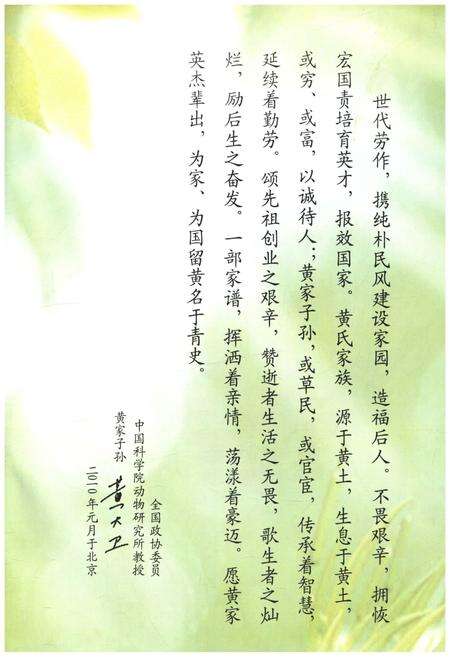 世代劳作，携纯朴民风建设家园，造福后人。不畏艰辛，拥恢
宏国责培育英才，报效国家。黄氏家族，源于黄土，生息于黄土，
或穷、或富，以诚待人；黄家子孙，或草民，或官宦，传承着智慧，
延续着勤劳。颂先祖创业之艰辛，赞逝者生活之无畏，歌生者之灿
烂，励后生之奋发。一部家谱，挥洒着亲情，荡漾着豪迈。愿黄家
英杰辈出，为家、为国留黄名于青史。
全国政协委员
中国科学院动物研究所教授
黄家子孙 黄大卫
二〇一〇年元月于北京